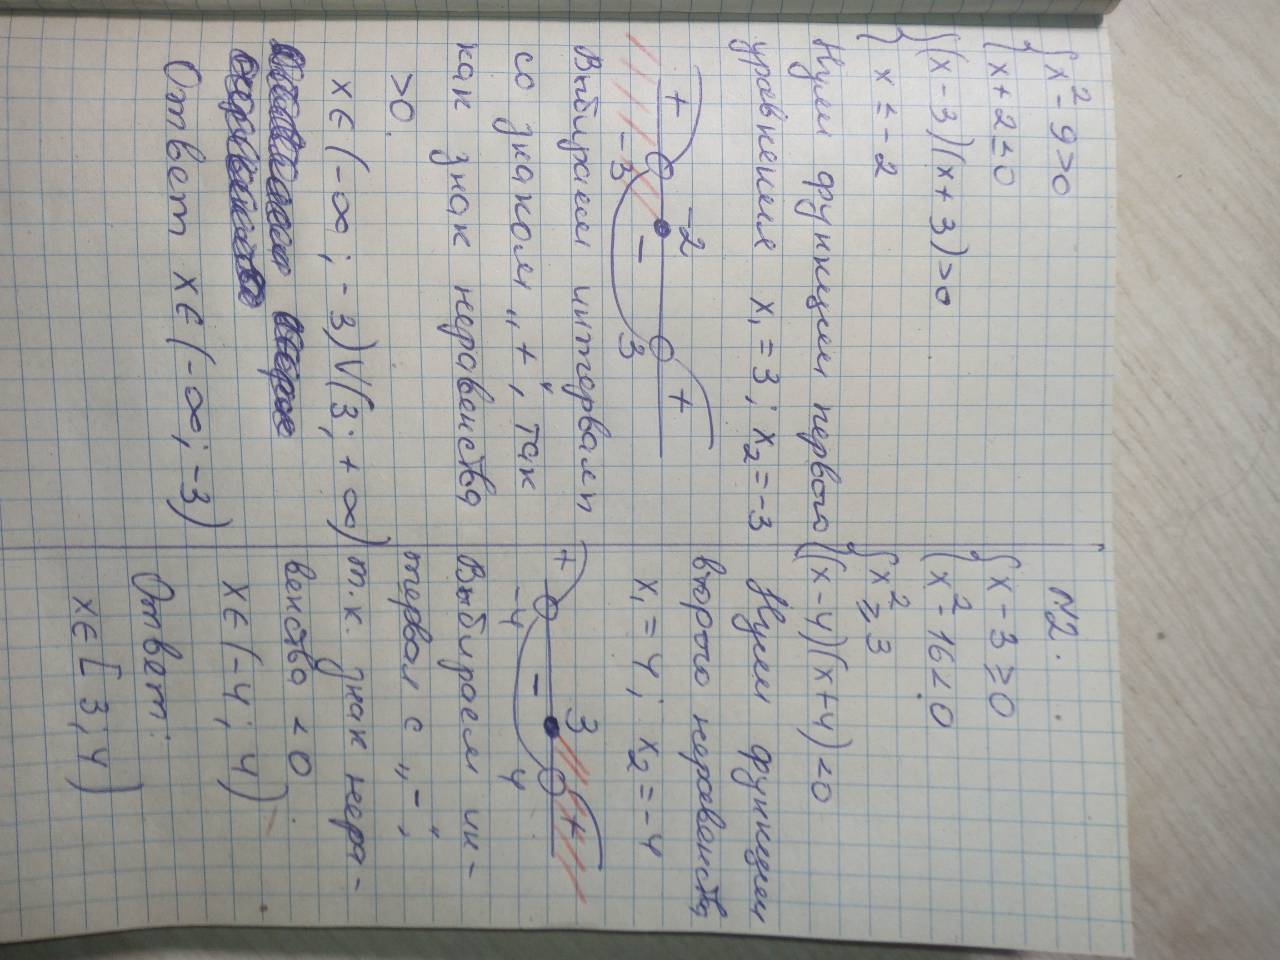 { x² - 9 > 0
{ x + 2 ≤ 0
{ (x - 3)(x + 3) > 0
{ x ≤ - 2
Нули функции первого
уравнения x₁ = 3; x₂ = -3
+ - +
-3 -2 3
Выбираем интервалы
со знаком „+“, так
как знак неравенства
>0.
x ∈ (-∞; -3) V (3; +∞)
Ответ x ∈ (-∞; -3)
N2.
{ x - 3 ≥ 0
{ x² - 16 < 0
{ x² ≥ 3
{ (x - 4)(x + 4) < 0
Нули функции
второго неравенства
x₁ = 4; x₂ = -4
+ - +
-4 3 4
Выбираем ин-
тервал с „-“,
т.к. знак нера-
венства < 0
x ∈ (-4; 4)
Ответ:
x ∈ [3; 4)